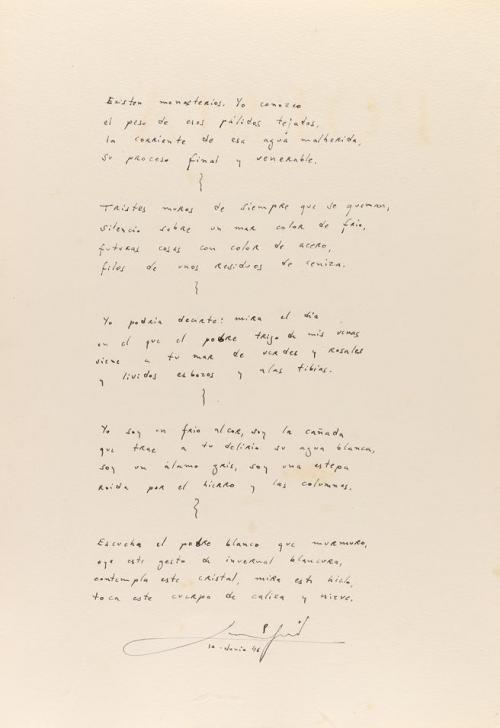 Existen monasterios. Yo conozco
el peso de esos pálidos tejados,
la corriente de esa agua malherida,
su proceso final y venerable.
Tristes muros de siempre que se queman,
silencio sobre un mar color de frío,
futuras cosas con color de acero,
filos de unos residuos de ceniza.
Yo podría decirte: mira el día
en el que el pobre trigo de mis venas
viene a tu mar de verdes y rosales
y lívidos esbozos y alas tibias.
Yo soy un frío alcor, soy la cañada
que trae a tu delirio su agua blanca,
soy un álamo gris, soy una estepa
roida por el hierro y las columnas.
Escucha el pobre blanco que murmuro,
oye este gesto de invernal blancura,
contempla este cristal, mira este hielo,
toca este cuerpo de caliza y nieve.
10-Junio 46